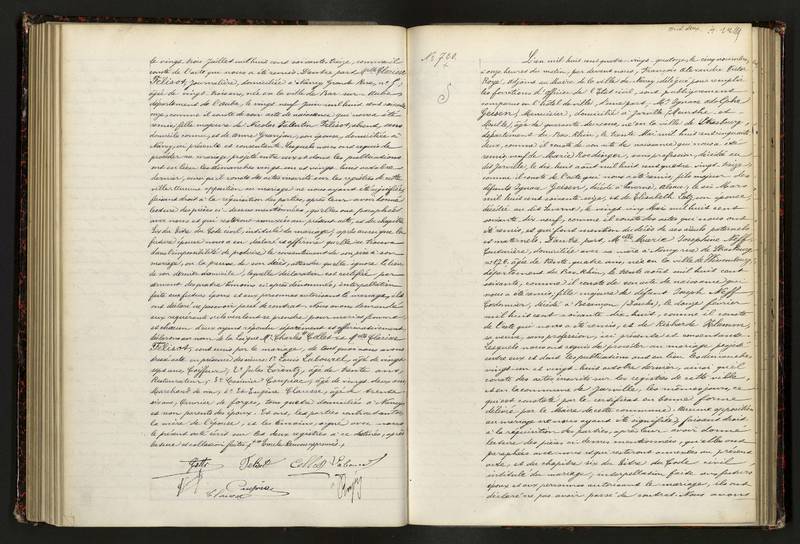 le vingt trois Juillet mil huit cent soixante treize, comme il
conste de l'acte que nous a été remis. D'autre part Melle Clarisse
Felizot, Journalière, domiciliée à Nancy Grande Rue, n°
âgée de vingt trois ans, née en la ville de Bar-sur-Aube
département de l'Aube, le vingt neuf Juin mil huit cent soixante
onze, comme il conste de son acte de naissance qui nous a été
remis, fille majeure de Nicolas Valentin Felizot, absent, sans
domicile connu, et de Granjon, son épouse, domiciliée à
Nancy, ici présente et consentante. Lesquels nous ont requis de
procéder au mariage projeté entre eux et dont les publications
ont eu lieu les dimanches vingt un et vingt huit octobre
dernier, ainsi qu'il conste des actes inscrits sur les registres de cette
ville. Aucune opposition au mariage ne nous ayant été signifiée,
faisant droit à la réquisition des parties, après leur avoir donné
lecture des pièces ci-dessus mentionnées, qu'elles ont paraphées
avec nous et qui resteront annexées au présent acte, et du chapitre
six du titre du Code civil, intitulé du mariage, après aussi que la
future épouse nous a eu déclaré et affirmé qu'elle se trouve
dans l'impossibilité de produire le consentement de son père à son
mariage, ou la preuve de son décès, attendu qu'elle ignore le lieu
de son dernier domicile, laquelle déclaration est certifiée par
serment des quatre témoins ci-après dénommés, interpellation
faite aux futurs époux et aux personnes autorisant le mariage, ils
ont déclaré ne pas avoir passé de contrat. Nous avons demandé
aux requérants s'ils veulent se prendre pour mari et femme
et chacun d'eux ayant répondu séparément et affirmativement
déclarons au nom de la loi que Mr Charles Collet et Melle Clarisse
Felizot, sont unis par le mariage, de tout quoi nous avons
dressé acte en présence de sieurs 1° Louis Labourel, âgé de vingt
sept ans, Coiffeur, 2° Jules Lorentz, âgé de trente ans,
Restaurateur, 3° Casimir Coupiac, âgé de vingt deux ans
Marchand de vin, 4° Eugène Clausse, âgé de trente
six ans, Ouvrier de forges, tous quatre domiciliés à Nancy
et non parents des époux. Et ont, les parties contractantes
la mère de l'épouse, et les témoins, signé avec nous
le présent acte inscrit sur les deux registres à ce destinés, après
lecture et collation faites
Felizot Collet Labourel
Clausse Coupiac
N° 730.
L'an mil huit cent quatre-vingt-quatorze, le cinq novembre,
à onze heures du matin, par devant nous, François Alexandre Victor
Roye, adjoint au Maire de la ville de Nancy délégué pour remplir
les fonctions d'officier de l'État civil, sont publiquement
comparus en l'hôtel de ville, d'une part, Mr Ignace Adolphe
Geissen, Menuisier, domicilié à Jarville, Meurthe et
Moselle, âgé de quarante deux ans, né en la ville de Strasbourg,
département du Bas-Rhin, le trente Mai mil huit cent cinquante
deux, comme il conste de son acte de naissance qui nous a été
remis, veuf de Marie Roedinger, sans profession, décédée au
dit Jarville, le dix huit août mil huit cent quatre vingt treize
comme il conste de l'acte qui nous a été remis, fils majeur des
défunts Ignace Geissen, décédé à Alsace, le six Mars
mil huit cent soixante onze, et de Elisabeth Lotz, son épouse,
décédée au dit le vingt cinq mai mil huit cent
soixante dix neuf, comme il conste des actes qui nous ont
été remis, et qui font mention du décès de ses aïeuls paternels
et maternels. D'autre part, Melle Marie Joséphine Neff
Cuisinière, domiciliée avec sa mère à Nancy rue de Strasbourg
n° 178, âgée de trente quatre ans, née en la ville de Strasbourg,
département du Bas-Rhin, le trente août mil huit cent
soixante, comme il conste de son acte de naissance qui
nous a été remis, fille majeure de défunt Joseph Neff
Cordonnier, décédé à Besançon (Doubs), le douze février
mil huit cent soixante dix huit, comme il conste
de l'acte qui nous a été remis, et de Richarde Kleman,
sa veuve, sans profession, ici présente et consentante.
Lesquels nous ont requis de procéder au mariage projeté
entre eux et dont les publications ont eu lieu les dimanches
vingt un et vingt huit octobre dernier, ainsi qu'il
conste des actes inscrits sur les registres de cette ville,
et en la commune de Jarville, les mêmes jours, ce
qui est constaté par le certificat en bonne forme
délivré par le Maire de cette commune. Aucune opposition
au mariage ne nous ayant été signifiée, faisant droit
à la réquisition des parties, après leur avoir donné
lecture des pièces ci-dessus mentionnées, qu'elles ont
paraphées avec nous et qui resteront annexées au présent
acte, et du chapitre six du titre du Code civil
intitulé du mariage, interpellation faite aux futurs
époux et aux personnes autorisant le mariage, ils ont
déclaré ne pas avoir passé de contrat. Nous avons